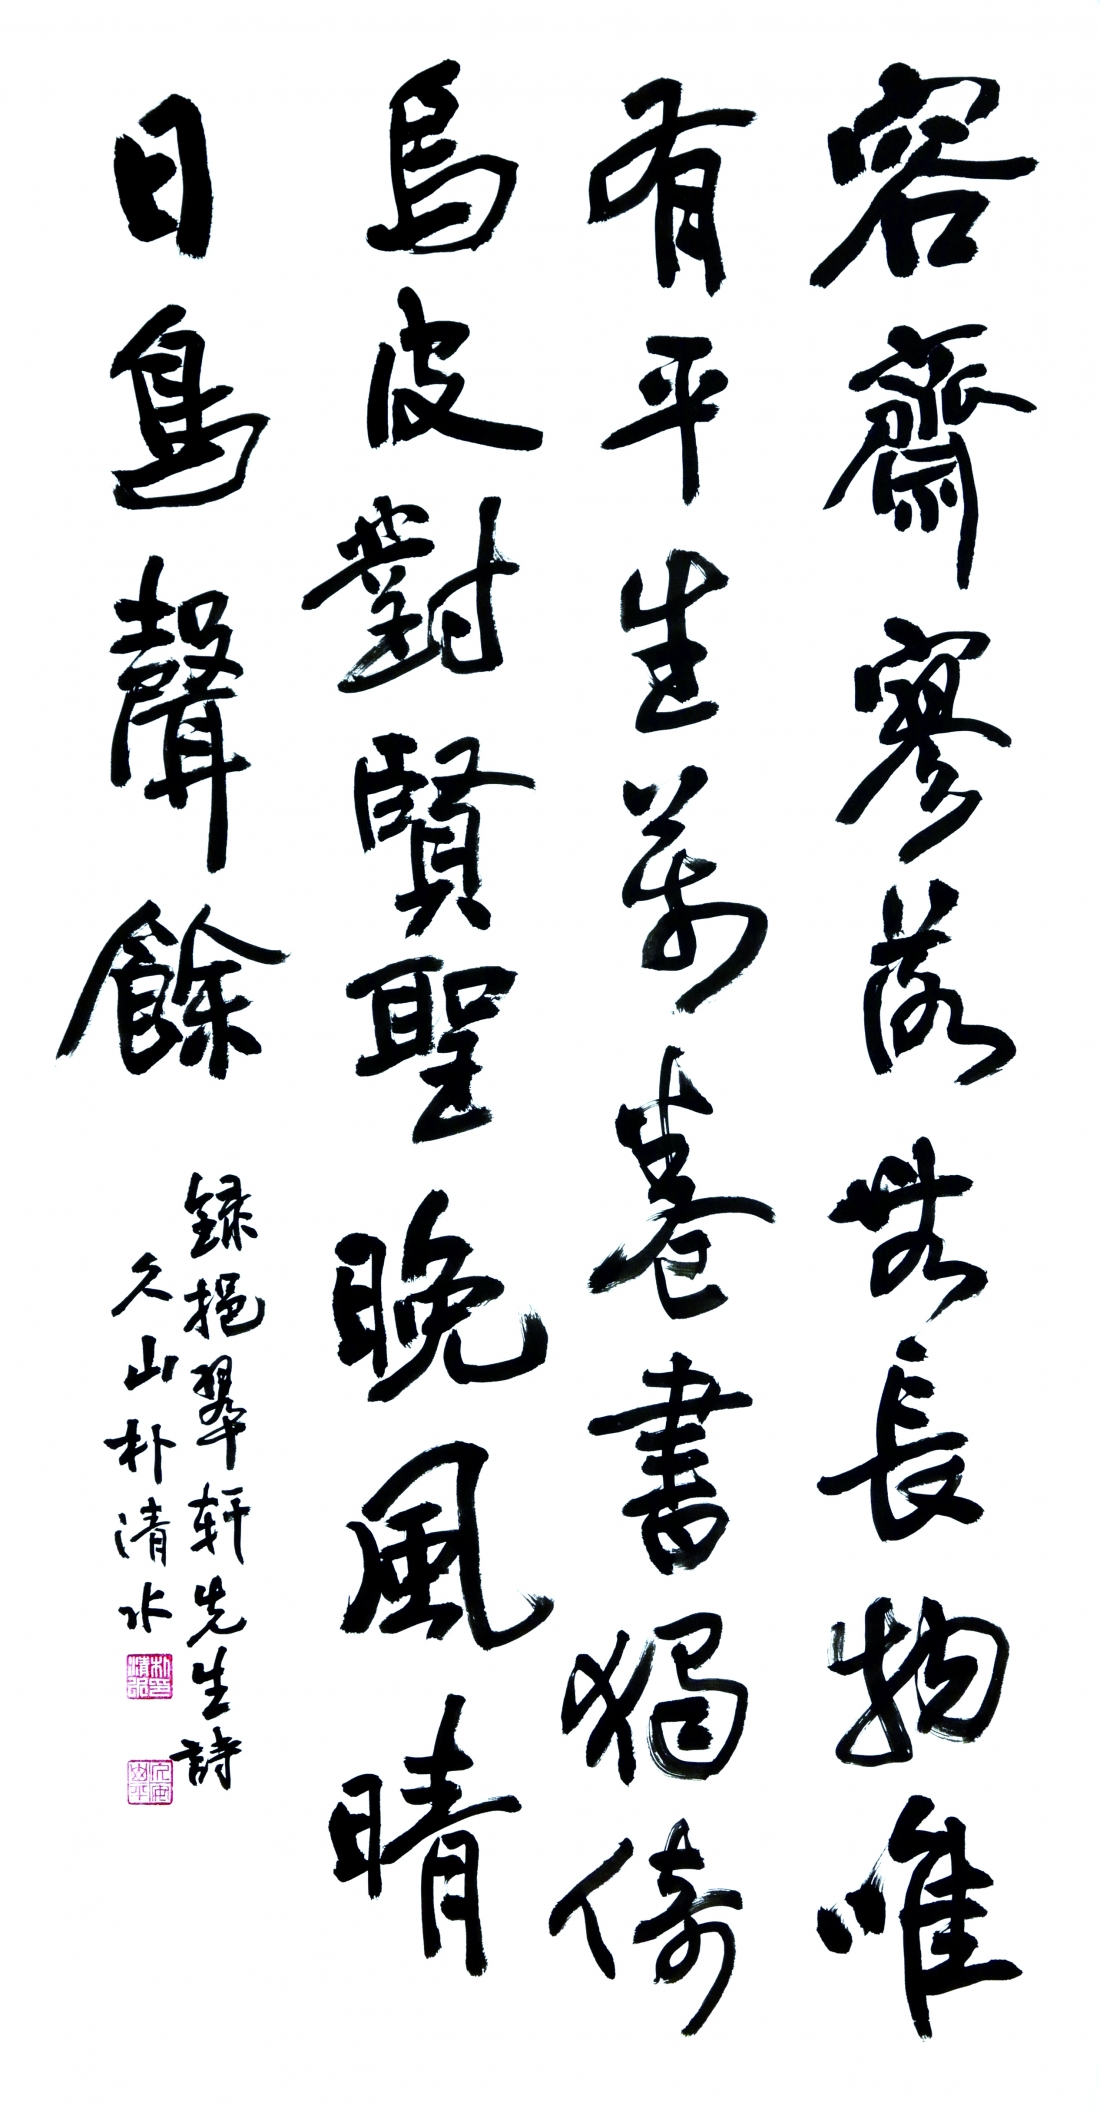 容齋寥落無長物唯
有平生萬卷書獨倚
烏皮對賢聖晚風晴
日鳥聲餘
錄挹翠軒先生詩
久山朴清水